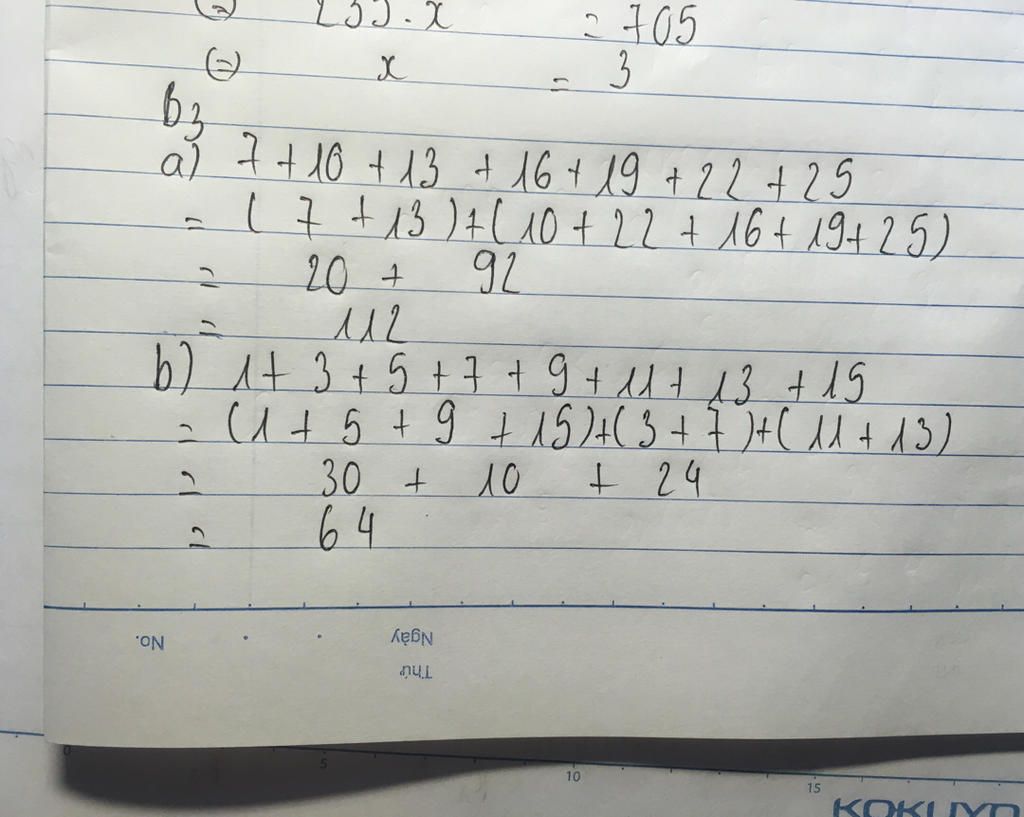 (=) 235.x = 705
(=) x = 3
b3
a) 7+10+13+16+19+22+25
= (7+13)+(10+22+16+19+25)
= 20 + 92
= 112
b) 1+3+5+7+9+11+13+15
= (1+5+9+15)+(3+7)+(11+13)
= 30 + 10 + 24
= 64
No. Ngày
Thứ
0 5 10 15
KOKUYO